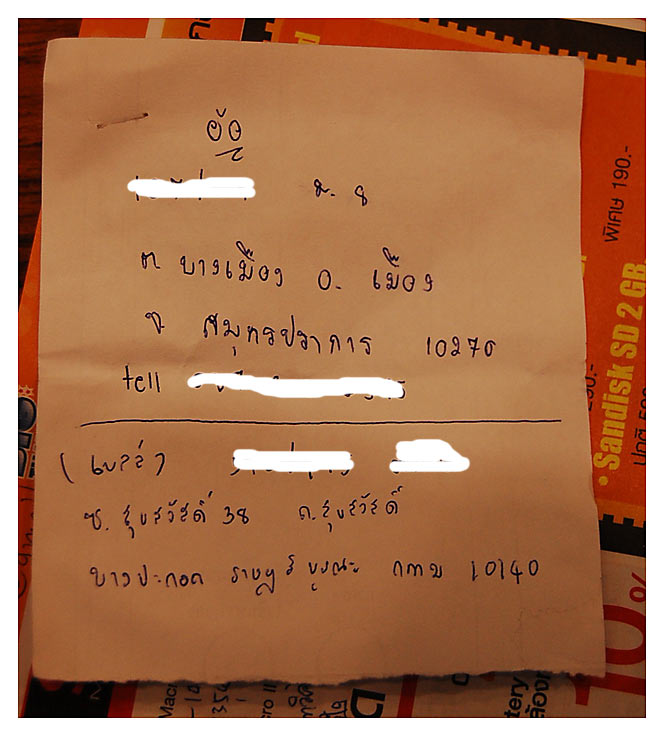 อ้อ
ม. 8
ต. บางเมือง อ. เมือง
จ. สมุทรปราการ 10270
tell
ซ. สุขสวัสดิ์ 38 ถ. สุขสวัสดิ์
บางปะกอก ราษฎร์บูรณะ กทม 10140
พิเศษ 190.-
• Sandisk SD 2 GB
10%